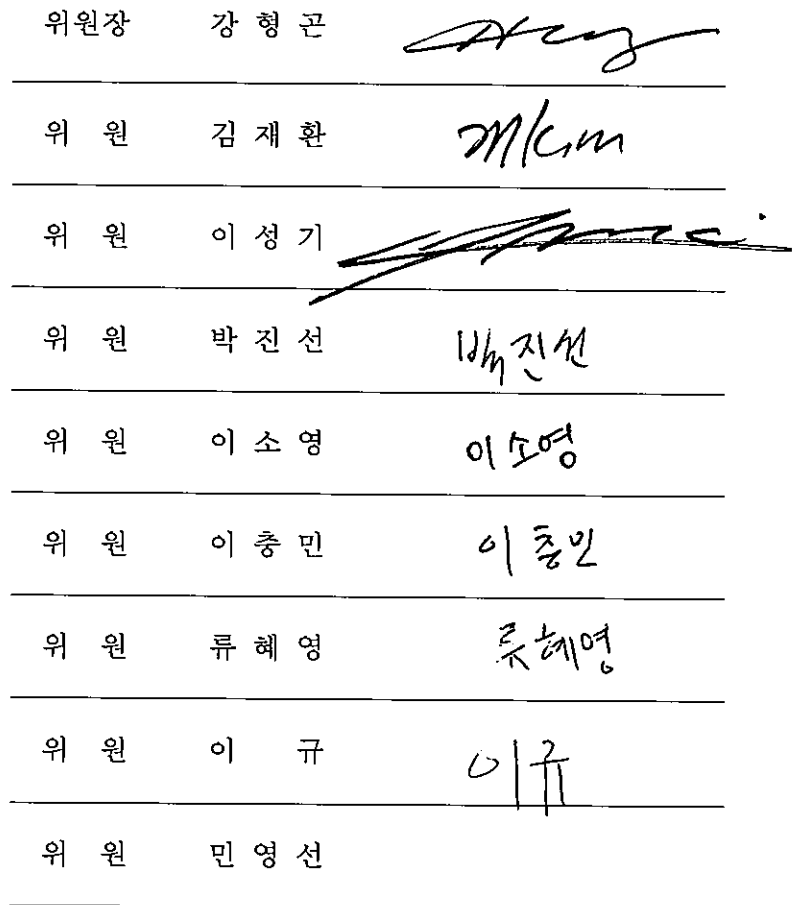 위원장 강 형 곤
위 원 김 재 환
위 원 이 성 기
위 원 박 진 선 박진선
위 원 이 소 영 이소영
위 원 이 충 민 이충민
위 원 류 혜 영 류혜영
위 원 이 규 이규
위 원 민 영 선